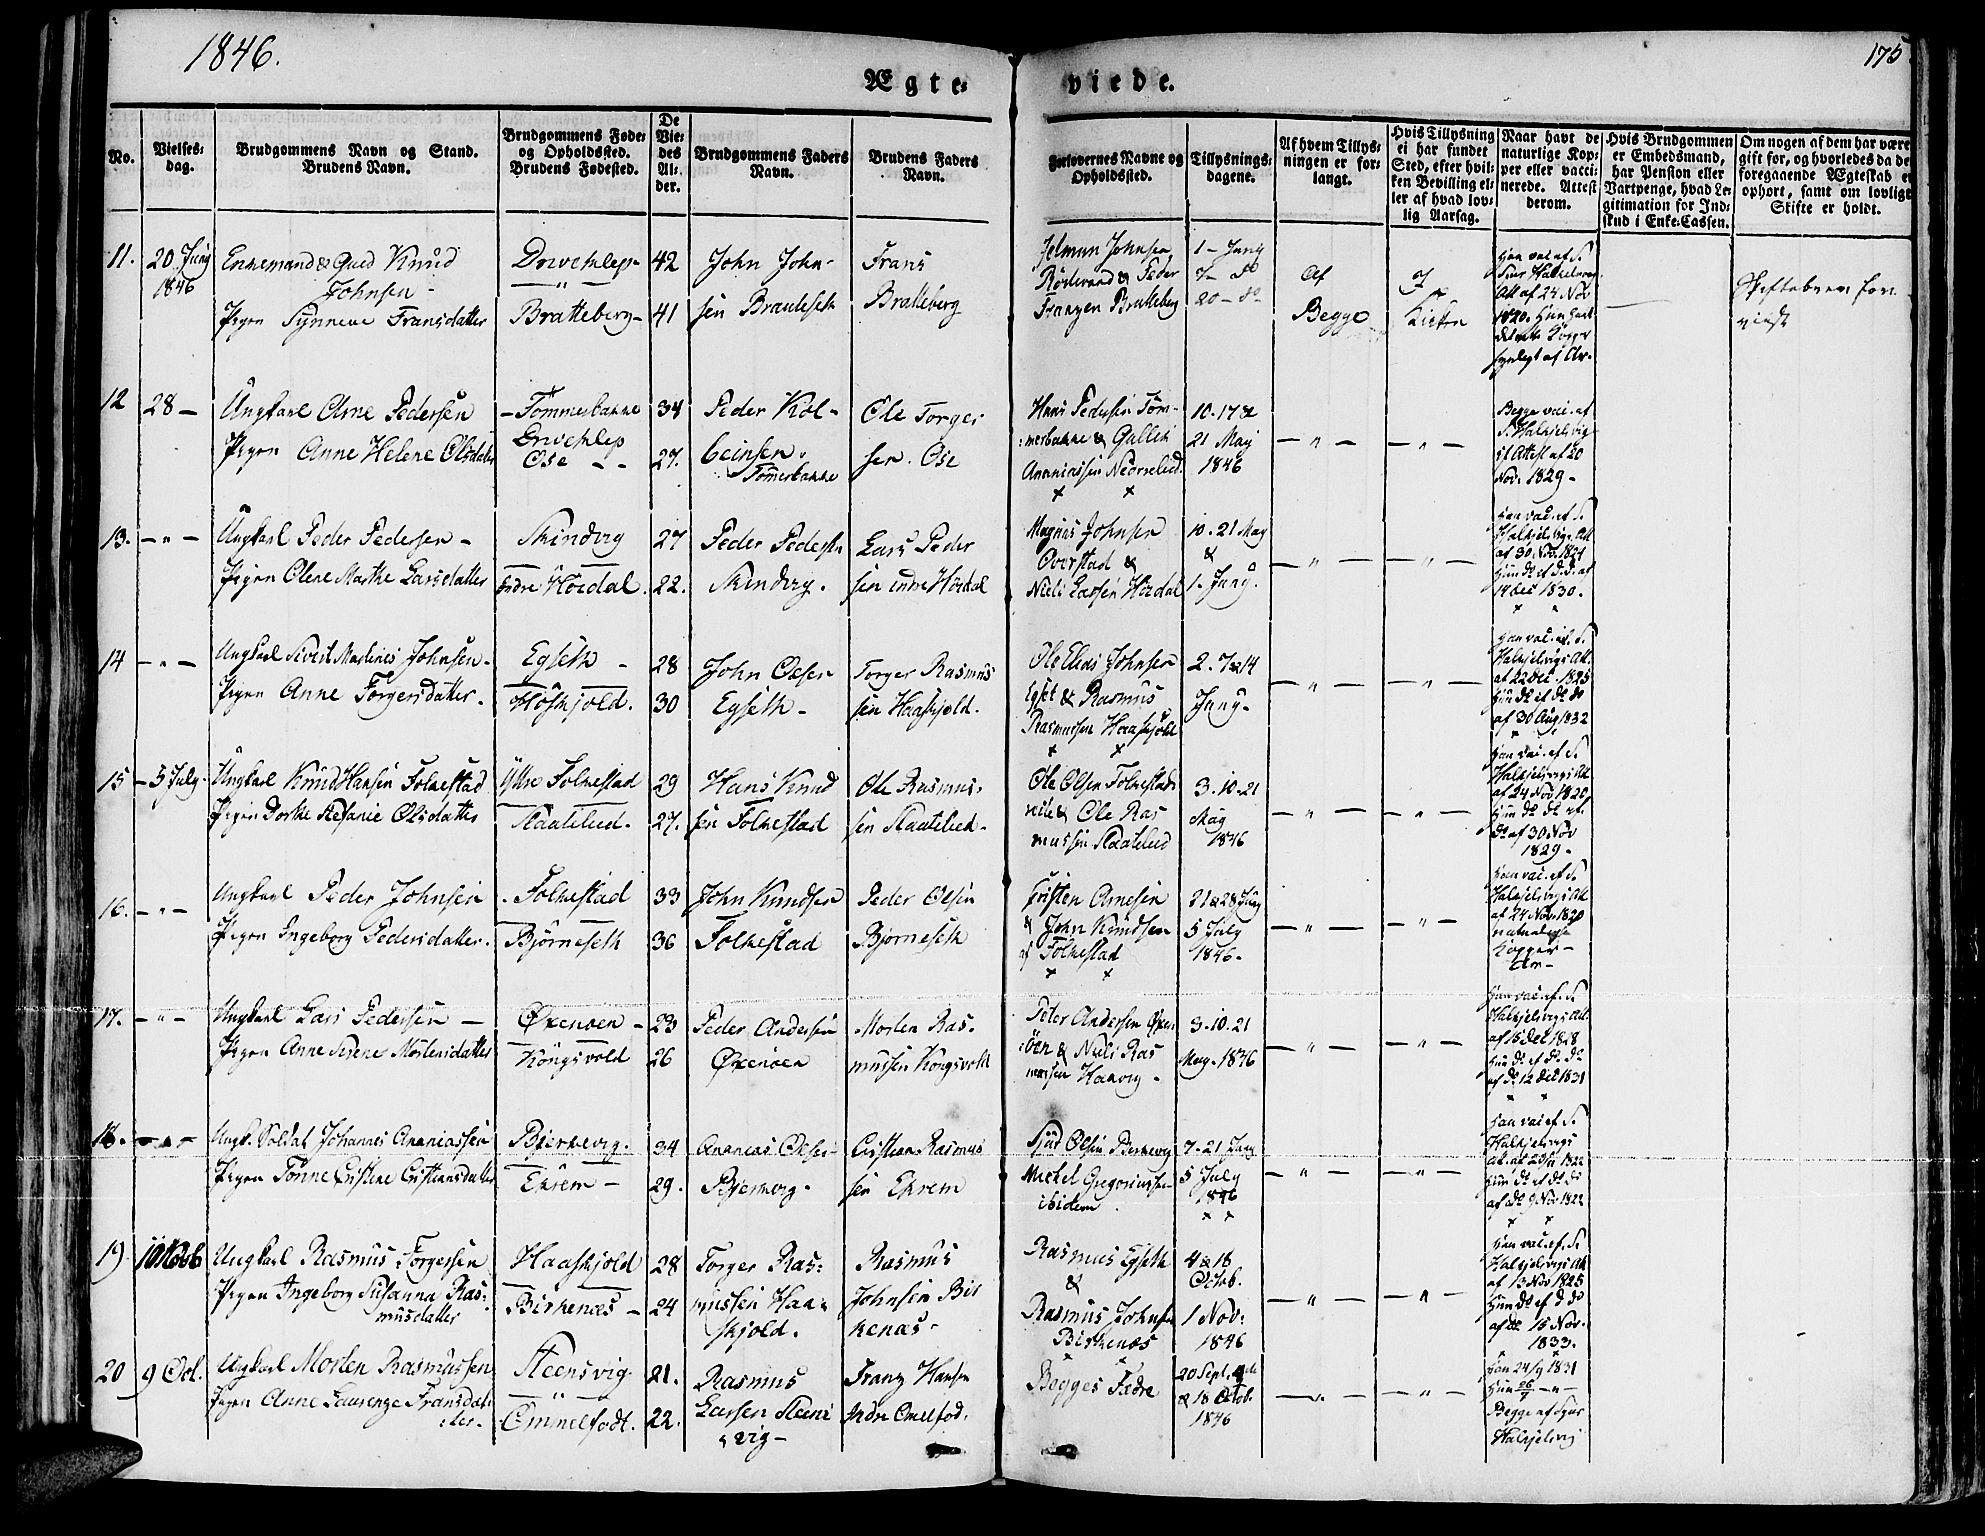 1846.
175
Ægte-
viede.
No.
Vielses-
dag.
Brudgommens Navn og Stand.
Brudens Navn.
Brudgommens Føde-
og Opholdssted.
Brudens Fødested.
De
Vie-
des
Al-
der.
Brudgommens Faders
Navn.
Brudens Faders
Navn.
Forlovernes Navne og
Opholdssted.
Tillysnings-
dagene.
Af hvem Tillys-
ningen er for-
langt.
Hvis Tillysning
ei har fundet
Sted, efter hvil-
ken Bevilling el-
ler af hvad lov-
lig Aarsag.
Naar havt de
naturlige Kop-
per eller vacci-
nerede. Attest
derom.
Hvis Brudgommen
er Embedsmand,
har Pension eller
Vartpenge, hvad Le-
gitimation for Ind-
skud i Enke-Cassen.
Om nogen af dem har være
gift før, og hvorledes da de
foregaaende Ægteskab e
ophørt, samt om lovlige
Skifte er holdt.
11.
20 Juny
1846
Enkemand Knud
Johnsen -
Pigen Synneve Fransdatter
Bratteberg -
42
41
John John-
sen
Frans
Bratteberg
Johnsen
& Peder
Fransen Bratteberg
1 - Juny
7 - do
20 - do
Af
Begge
I
Kirken
Att af 24 Nov
1820.
12
28 -
Ungkarl Arne Pedersen
Pigen Anne Helene Olsdatter
- Tømmerbakke
Ose - -
34
27.
Peder Kol-
beinsen.
Tømerbakke
Ole Torger
sen. Ose
Hans Pedersen Tøm-
merbakke & Gullek
Ananiassen
10. 17 &
21 May
1846
- " -
- " -
Begge vac. af
S. Halkjelsvig
Attest af 20
Nov. 1829 -
13.
- " -
Ungkarl Peder Pedersen -
Pigen Olene Marthe Larsdatter
Skindvig
Indre Hordal.
27
22.
Peder Pedersen
Skindvig.
Lars Peder
sen indre Hordal
Magnus Johnsen
Overstad &
Niels Larsen Hordal
10. 21 May
&
1 - Juny.
- " -
- " -
Han vac. af S.
Halkjelsvigs Att
af 30 Nov. 1821
14 Dec 1830.
14
- " -
Ungkarl Sivert Martines Johnsen -
Pigen Anne Torgersdatter.
Egseth -
28
30
John Olsen
Egseth -
Torger Rasmus
sen Haaskjold.
Ole Elias Johnsen
Egset & Rasmus
Rasmussen Haaskjold
2. 7 & 14
Juny -
- " -
- " -
Han vac. af S.
Halkjelsvigs Att.
af 22 Dec. 1825
Hun do af do do
af 30 Aug 1832
15
- 5 July.
Ungkarl Knud Hansen Folkestad
Pigen Dorthe Stefanie Olsdatter
Ytre Folkestad
29
27.
Hans Knud
sen Folkestad
Ole Rasmus-
sen
Ole Olsen Folkestad
& Ole Ras
mussen
3. 10. 21
May
1846
- " -
- " -
Han vac. af S.
Halkjelsvigs Att
af 24 Nov 1820
Hun do do af.
do af 30 Nov
1829 -
16.
- " -
Ungkarl Peder Johnsen
Pigen Ingeborg Pedersdatter.
- Folkestad
Bjørneseth
33
36
John Knudsen
Folkestad
Peder Olsen
Bjørneseth
Cristen Arnesen
& John Knudsen
af Folkestad
21 & 28 Juny
5 July
1846 -
- " -
- " -
Han vac. af S.
Halkjelsvigs Att
af 24 Nov. 1820
naturlige
Kopper -
17.
- " -
Ungkarl Lars Pedersen -
Pigen Anne Serene Mortensdatter
Øxenøen -
Kongsvold
23
26
Peder Andersen
Øxenøen
Morten Ras-
mussen Kongsvold
Peter Andersen Øxen-
öen & Niels Ras
mussen Haavig -
3. 10. 21
May. 1846
- " -
- " -
Han vac. af S.
Halkjelsvigs Att
af 15 Dec 1818
Hun do af do. do
af do 12 Dec 1831
18.
- " -
Ungk. Soldat Johannes Ananiassen
Pigen Tønne Cristine Cristiansdatter
Bjerkevig.
Ekrem -
34
29.
Ananias Olsen
Bjerkevig -
Cristian Rasmus
sen Ekrem
Sjur Olsen Berkevig
Mickel Gregoriussen
ibidem
7. 21 Juny
5 July
1846
- " -
- " -
Han vac. af S.
Halkjelsvigs
1822
Hun do af do do
af do 9 Nov 1822
19
Ungkarl Rasmus Torgersen
Pigen Ingeborg Susanna Ras-
musdatter
Haaskjold
Birkenæs -
28
24
Torger Ras-
mussen Haa-
skjold.
Rasmus
Johnsen Bir
kenæs -
Rasmus Egseth
&
Rasmus Johnsen
Birkenæs
4 & 18
Octob.
1 Nov:
1846
- " -
- " -
Han vac. af. S.
Halkjelsvigs Att
af 13 Nov 1825
Hun do af do do
af do 15 Nov.
1833.
20
9 Oct.
Ungkarl Morten Rasmussen
Pigen Anne Laurenze Fransdat-
ter.
Steensvig
- " -
Ommelfodt.
21.
22.
Rasmus
Larsen Steens
vig -
Franz Hansen
Indre Omelfod.
Begges Fædre
20 Sept.
& 18 Octob.
1846
- " -
- " -
Han 24/9 1831
Hun 26/9 - " -
Begge af Sjur
Halkjelsvig